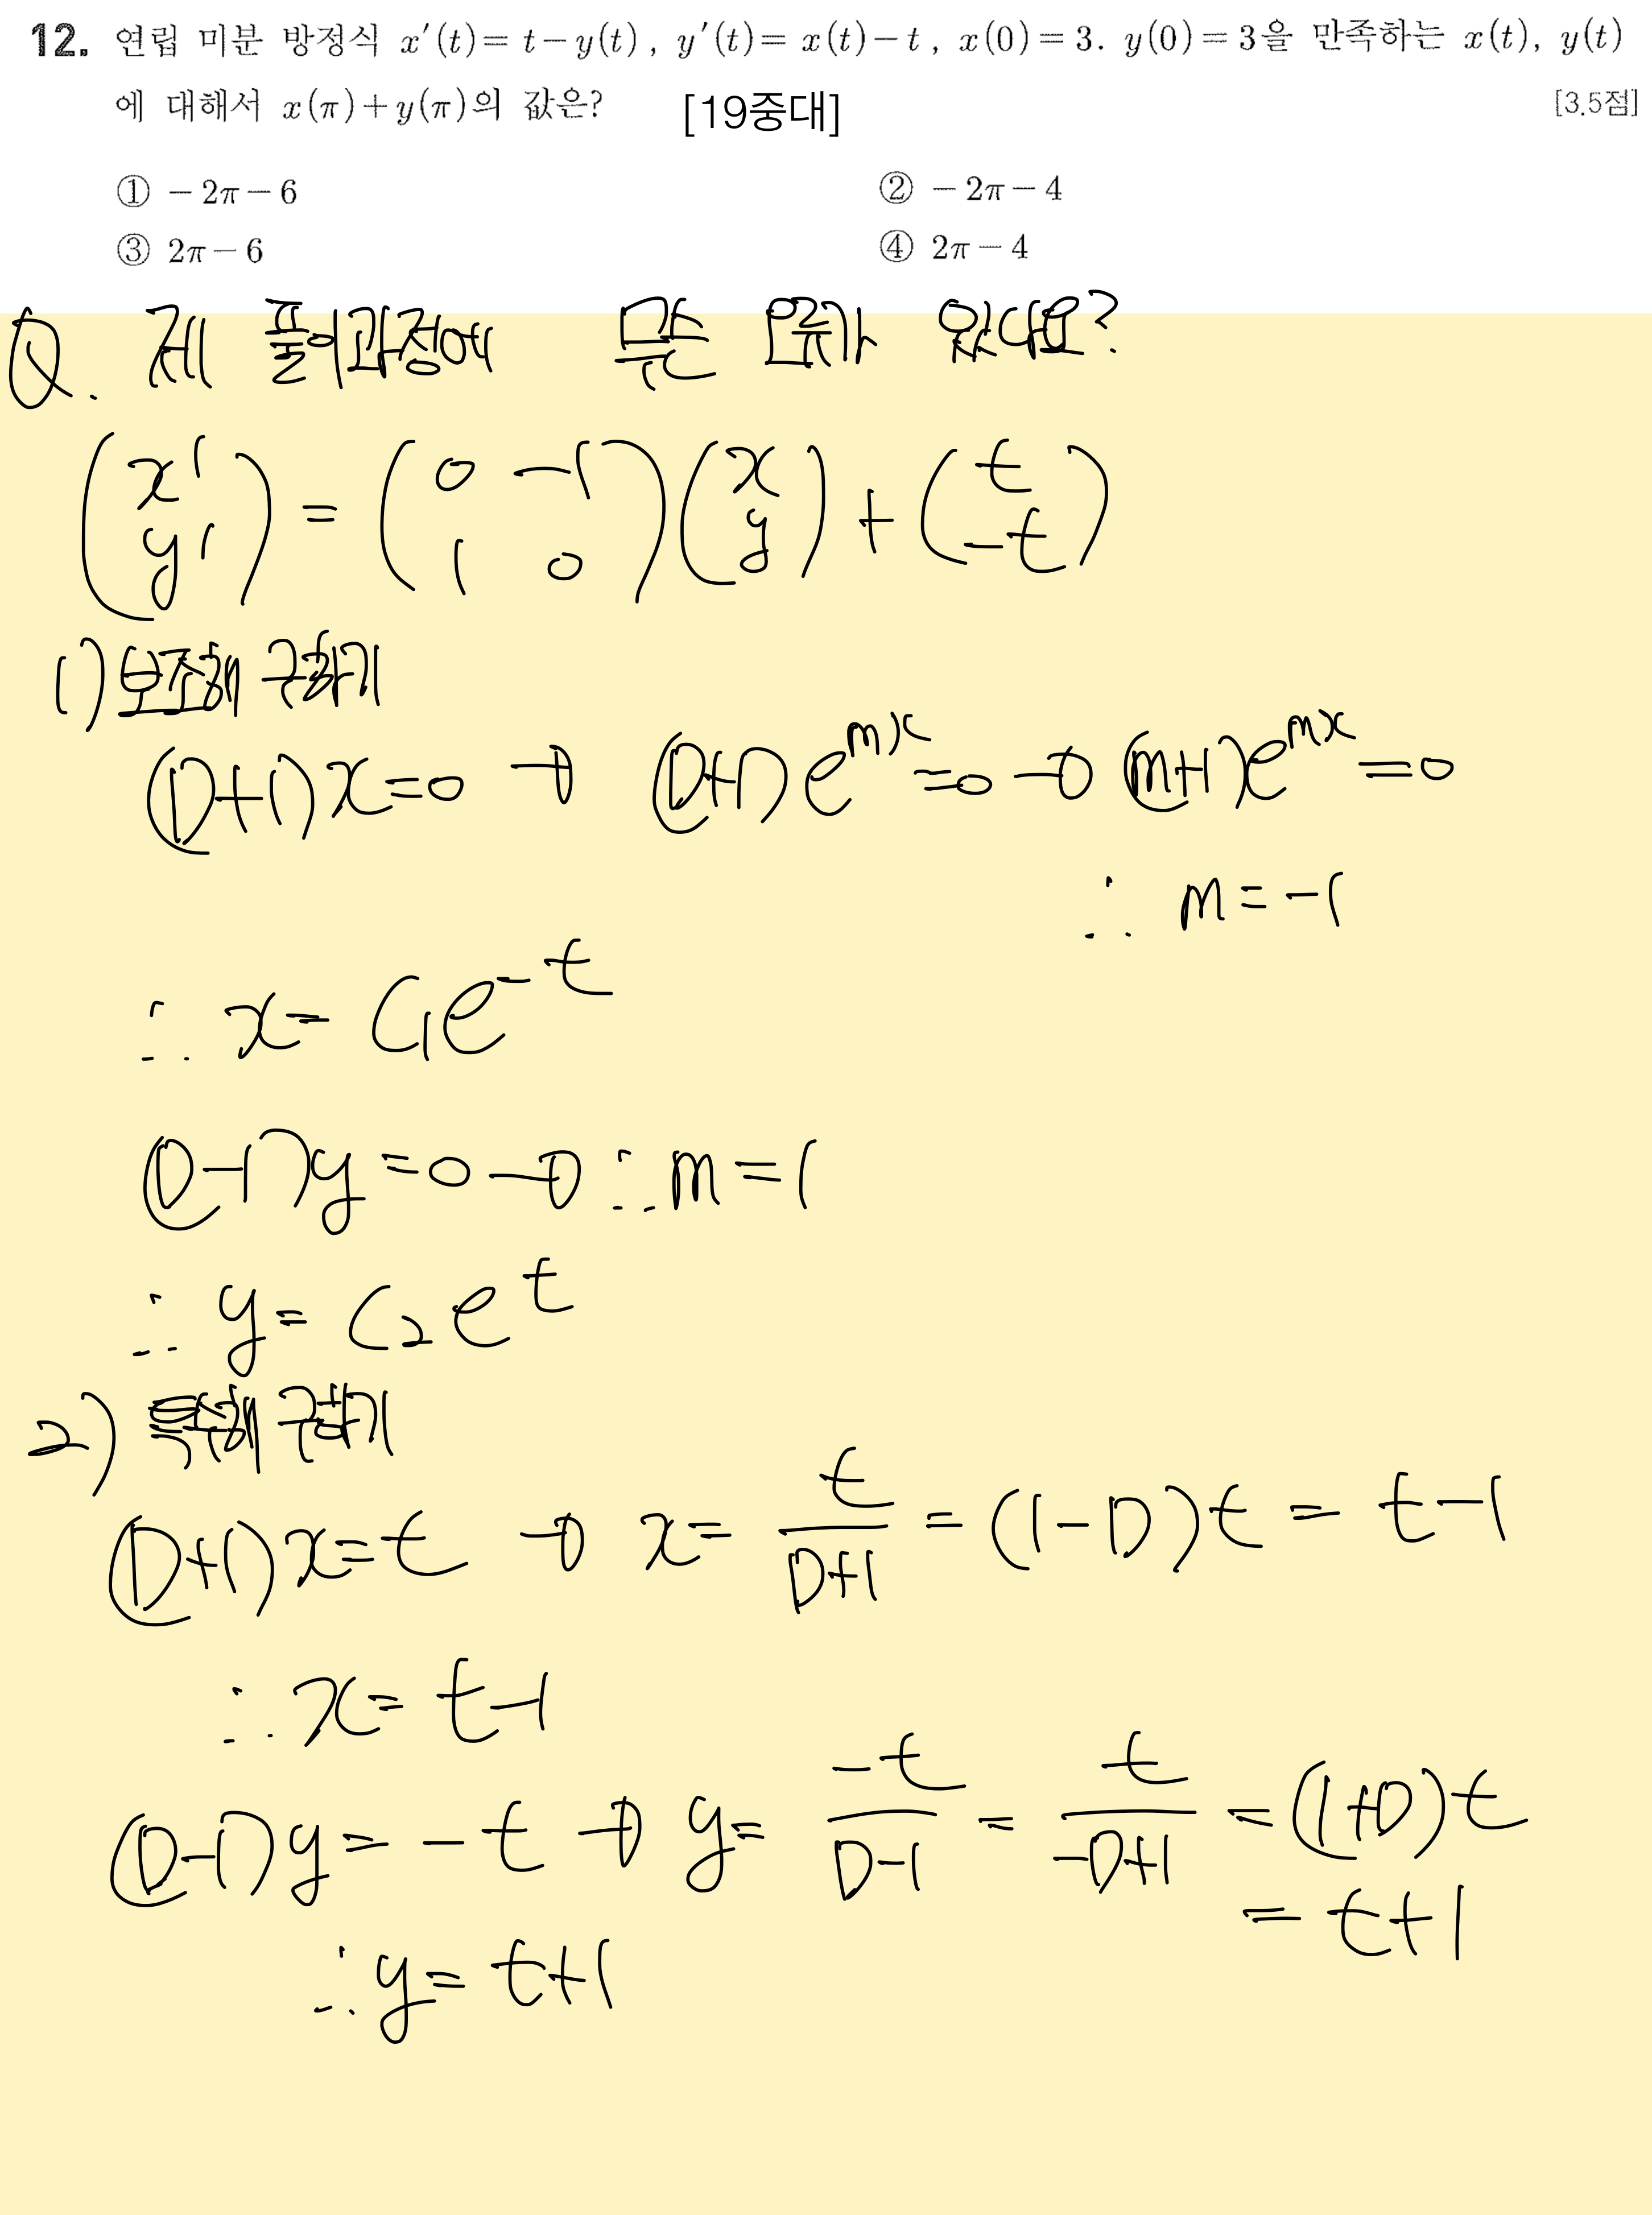 12. 연립 미분 방정식 x′(t)= t−y(t), y′(t)= x(t)−t, x(0)=3. y(0)=3을 만족하는 x(t), y(t)
에 대해서 x(π)+y(π)의 값은? [19중대] [3.5점]
① −2π−6 ② −2π−4
③ 2π−6 ④ 2π−4
Q. 제 풀이과정에 무슨 오류가 있나요?
(x′ y′) = (0 −1 1 0)(x y) + (t −t)
1) 보조해 구하기
(D+1)x=0 → (D+1)e^{mx}=0 → (m+1)e^{mx}=0
∴ m=−1
∴ x= C₁e^{−t}
(D−1)y=0 → ∴ m=1
∴ y= C₂e^{t}
2) 특수해 구하기
(D+1)x=t → x= t/(D+1) = (1−D)t = t−1
∴ x= t−1
(D−1)y= −t → y= −t/(D−1) = t/(−D+1) = (1+D)t
= t+1
∴ y= t+1